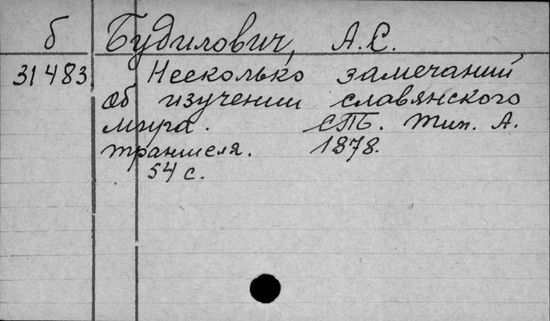 б Будилович, А.С.
31483 Несколько замечаний
об изучении славянского
мира. СПБ. Тип. А.
Траншеля. 1878.
54 с.